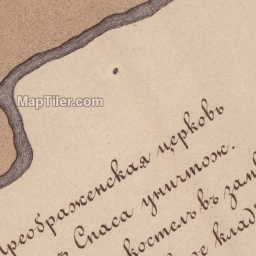 MapTiler.com
Преображенская церковь
Спаса уничтож.
костелъ въ